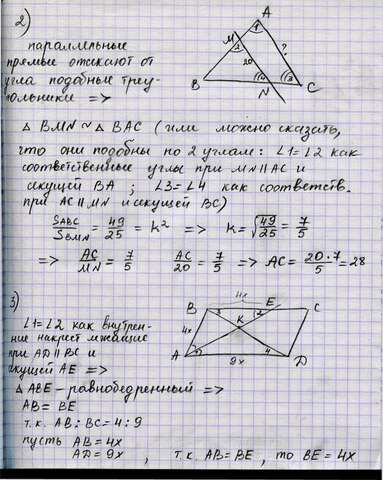 2)
параллельные
прямые отсекают от
угла подобные треу-
гольники =>
A
M
B
N
C
1
2
20
4
3
?
△ BMN ~ △ BAC (или можно сказать,
что они подобны по 2 углам: ∠1=∠2 как
соответственные углы при MN∥AC и
секущей BA; ∠3=∠4 как соответств.
при AC∥MN и секущей BC)
SABC/SBMN = 49/25 = k² => k = √49/25 = 7/5
=> AC/MN = 7/5 AC/20 = 7/5 => AC = 20·7/5 = 28
3)
∠1=∠2 как внутрен-
ние накрест лежащие
при AD∥BC и
секущей AE =>
△ABE - равнобедренный =>
AB = BE
т.к. AB:BC = 4:9
пусть AB = 4x
AD = 9x, т.к. AB=BE, то BE = 4x
4x
B
E
C
3
2
4x
K
A
4
D
9x